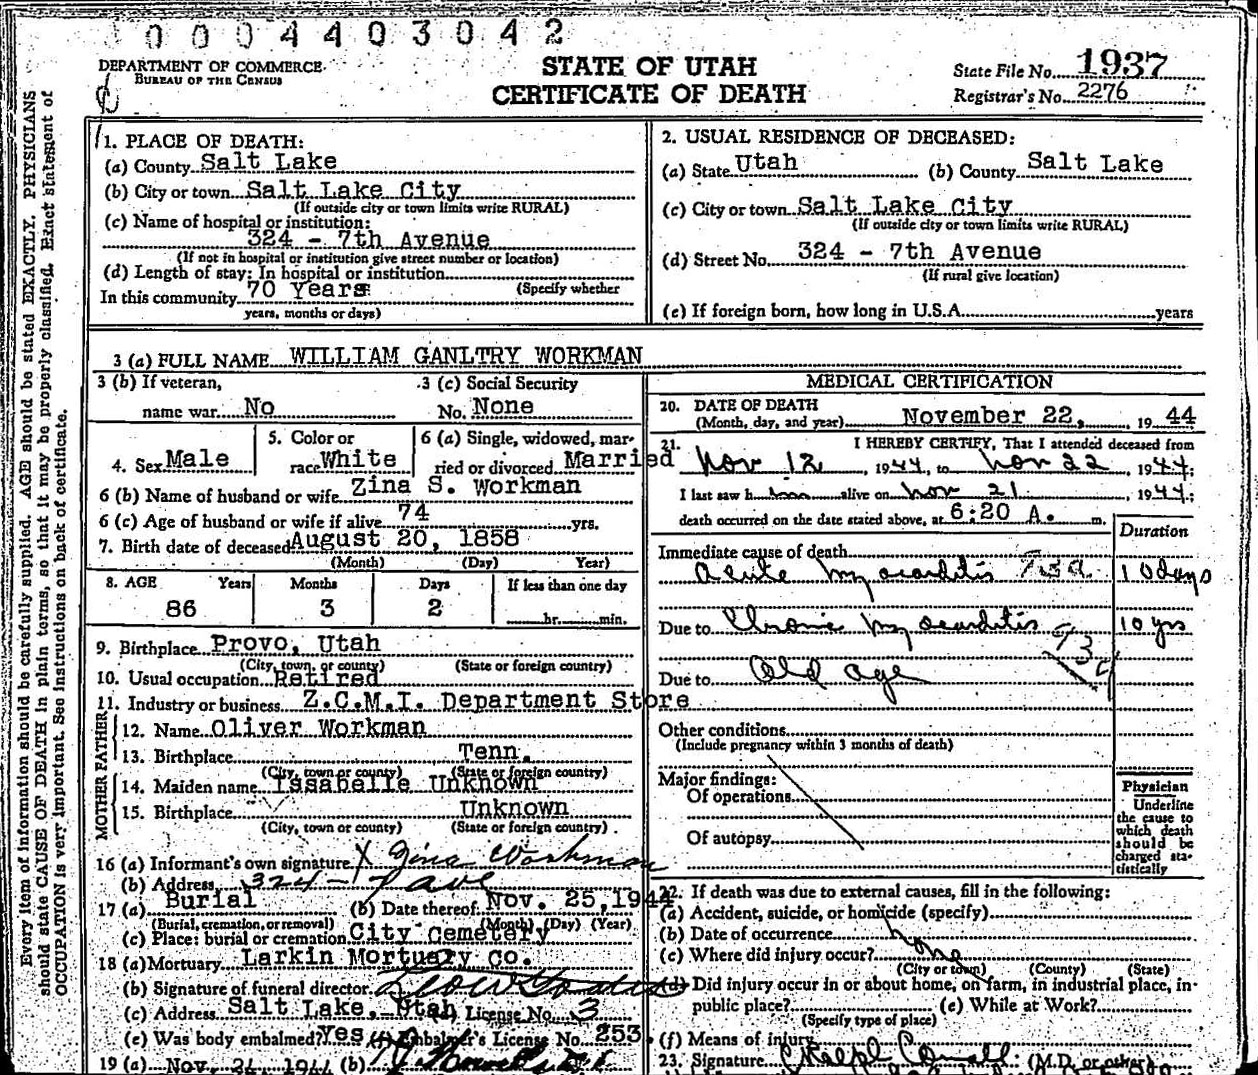 0004403042
DEPARTMENT OF COMMERCE
BUREAU OF THE CENSUS
STATE OF UTAH
CERTIFICATE OF DEATH
State File No. 1937
Registrar's No. 2276
Every item of information should be carefully supplied. AGE should be stated EXACTLY. PHYSICIANS
should state CAUSE OF DEATH in plain terms, so that it may be properly classified. Exact statement of
OCCUPATION is very important. See instructions on back of certificate.
1. PLACE OF DEATH:
(a) County Salt Lake
(b) City or town Salt Lake City
(If outside city or town limits write RURAL)
(c) Name of hospital or institution:
324 - 7th Avenue
(If not in hospital or institution give street number or location)
(d) Length of stay: In hospital or institution
(Specify whether
In this community 70 Years
years, months or days)
2. USUAL RESIDENCE OF DECEASED:
(a) State Utah (b) County Salt Lake
(c) City or town Salt Lake City
(If outside city or town limits write RURAL)
(d) Street No. 324 - 7th Avenue
(If rural give location)
(e) If foreign born, how long in U.S.A. years
3 (a) FULL NAME WILLIAM GANLTRY WORKMAN
3 (b) If veteran,
name war No
3 (c) Social Security
No. None
4. Sex Male
5. Color or
race White
6 (a) Single, widowed, mar-
ried or divorced Married
6 (b) Name of husband or wife Zina S. Workman
6 (c) Age of husband or wife if alive 74 yrs.
7. Birth date of deceased August 20, 1858
(Month) (Day) Year)
8. AGE Years Months Days If less than one day
86 3 2 hr. min.
9. Birthplace Provo, Utah
(City, town, or county) (State or foreign country)
10. Usual occupation Retired
11. Industry or business Z.C.M.I. Department Store
FATHER
12. Name Oliver Workman
13. Birthplace Tenn.
(City, town or county) (State or foreign country)
MOTHER
14. Maiden name Issabelle Unknown
15. Birthplace Unknown
(City, town or county) (State or foreign country)
16 (a) Informant's own signature X Zina Workman
(b) Address 324 - 7 ave
17 (a) Burial (b) Date thereof Nov. 25,1944
(Burial, cremation, or removal) (Month) (Day) (Year)
(c) Place: burial or cremation City Cemetery
18 (a) Mortuary Larkin Mortuary Co.
(b) Signature of funeral director
(c) Address Salt Lake, Utah License No. 3
(e) Was body embalmed? Yes (f) Embalmer's License No. 253
19 (a) Nov. 24, 1944 (b)
MEDICAL CERTIFICATION
20. DATE OF DEATH
(Month, day, and year) November 22, 19 44
21. I HEREBY CERTIFY, That I attended deceased from
Nov 12, 1944, to Nov 22, 1944;
I last saw him alive on Nov 21, 1944;
death occurred on the date stated above, at 6:20 A. m.
Duration
Immediate cause of death
Acute Myocarditis 93a 10 days
Due to Chronic Myocarditis 10 yrs
93d
Due to Old age
Other conditions
(Include pregnancy within 3 months of death)
Major findings:
Of operations
Of autopsy
Physician
Underline
the cause to
which death
should be
charged sta-
tistically
22. If death was due to external causes, fill in the following:
(a) Accident, suicide, or homicide (specify)
(b) Date of occurrence
(c) Where did injury occur? none
(City or town) (County) (State)
(d) Did injury occur in or about home, on farm, in industrial place, in
public place? (e) While at Work?
(Specify type of place)
(f) Means of injury
23. Signature (M.D. or other)